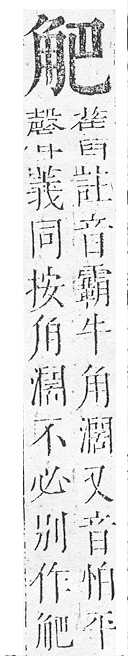 ⿰角巴
舊註音霸牛角濶又音怕平
聲義同按角濶不必别作⿰角巴